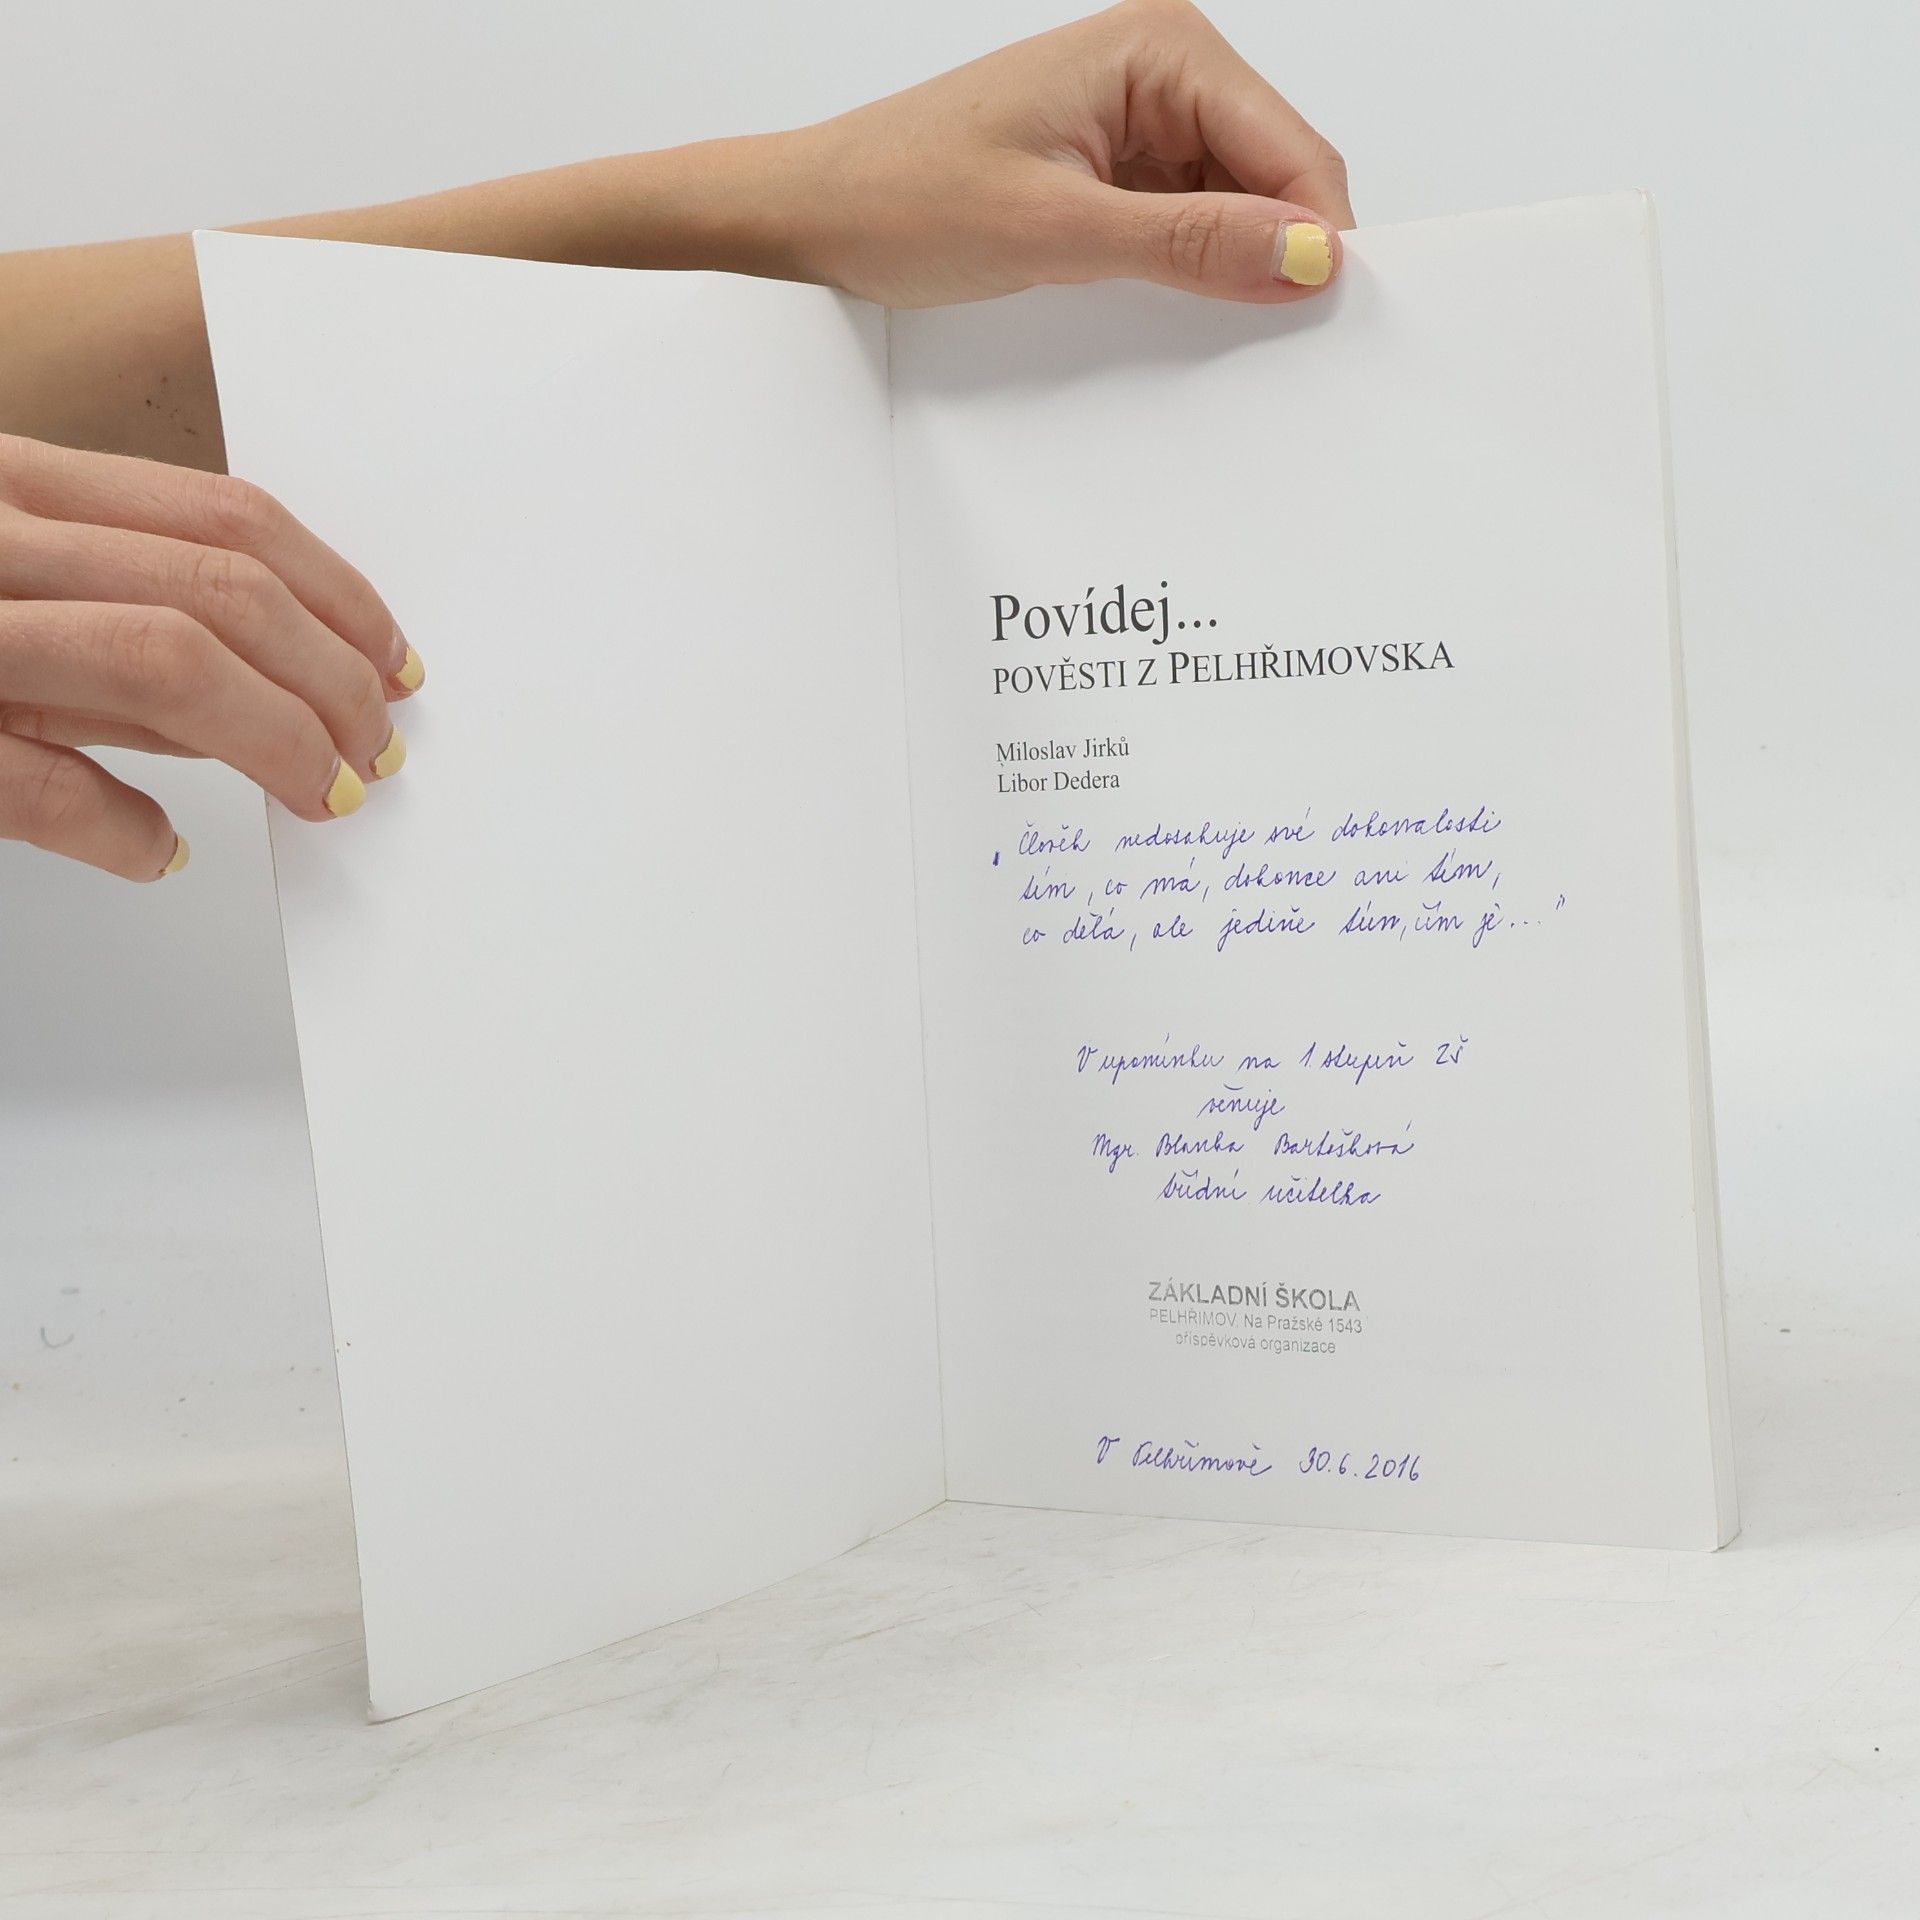 Povídej...
POVĚSTI Z PELHŘIMOVSKA
Miloslav Jirků
Libor Dedera
„Člověk nedosahuje své dokonalosti
tím, co má, dokonce ani tím,
co dělá, ale jedině tím, čím je..."
V upomínku na 1. stupeň ZŠ
věnuje
Mgr. Blanka Bartošková
třídní učitelka
ZÁKLADNÍ ŠKOLA
PELHŘIMOV, Na Pražské 1543
příspěvková organizace
V Pelhřimově 30.6.2016